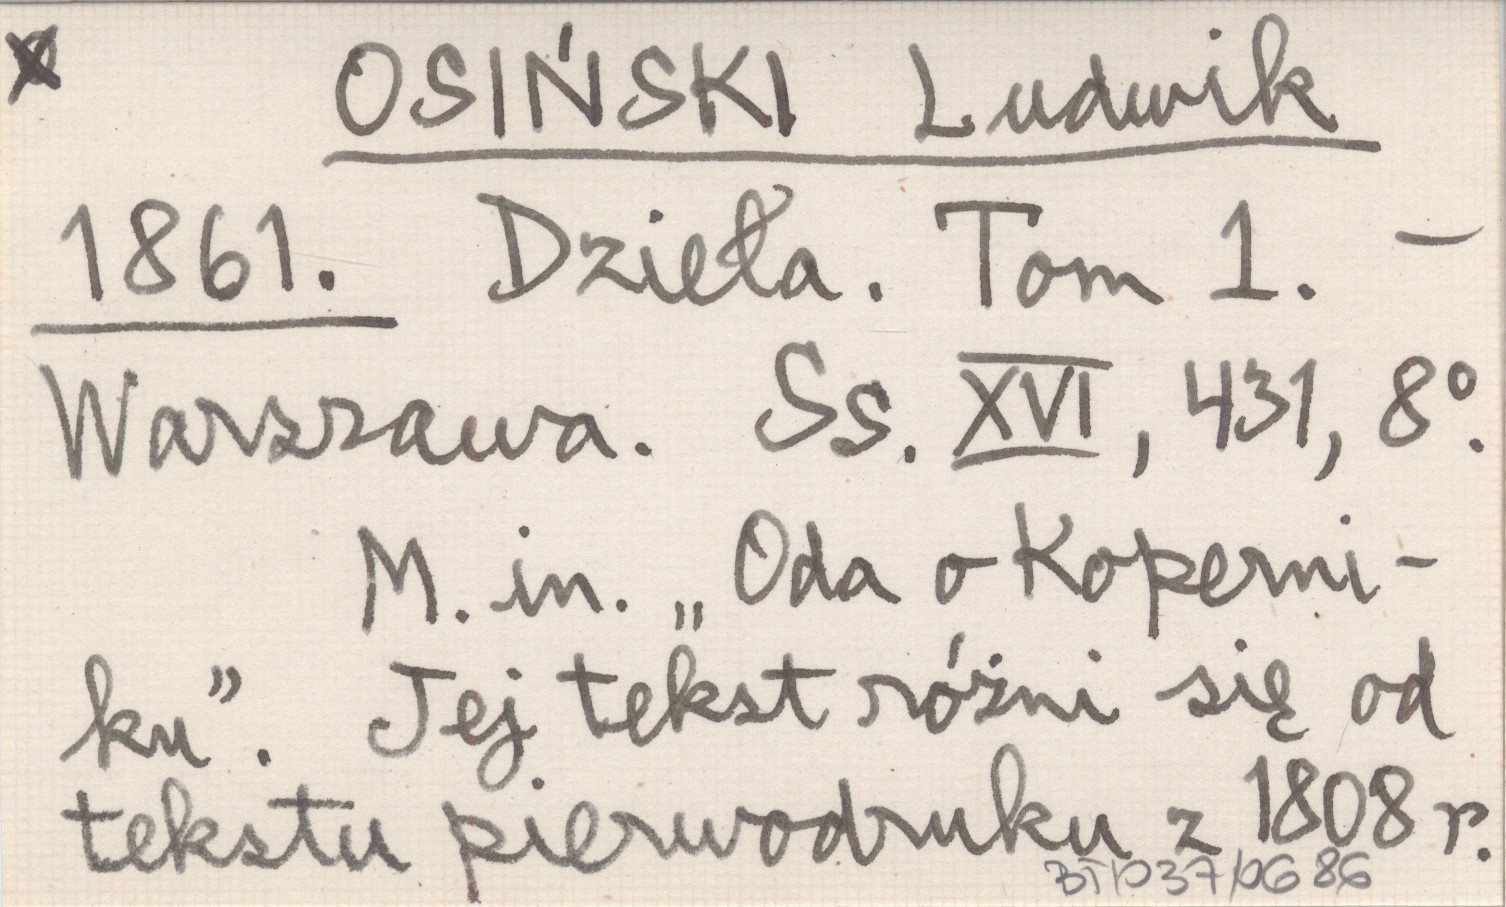 x OSIŃSKI Ludwik
1861. Dzieła. Tom 1. –
Warszawa. Ss. XVI, 431, 8º.
M. in. „Oda o Koperni-
ku”. Jej tekst różni się od
tekstu pierwodruku z 1808 r.